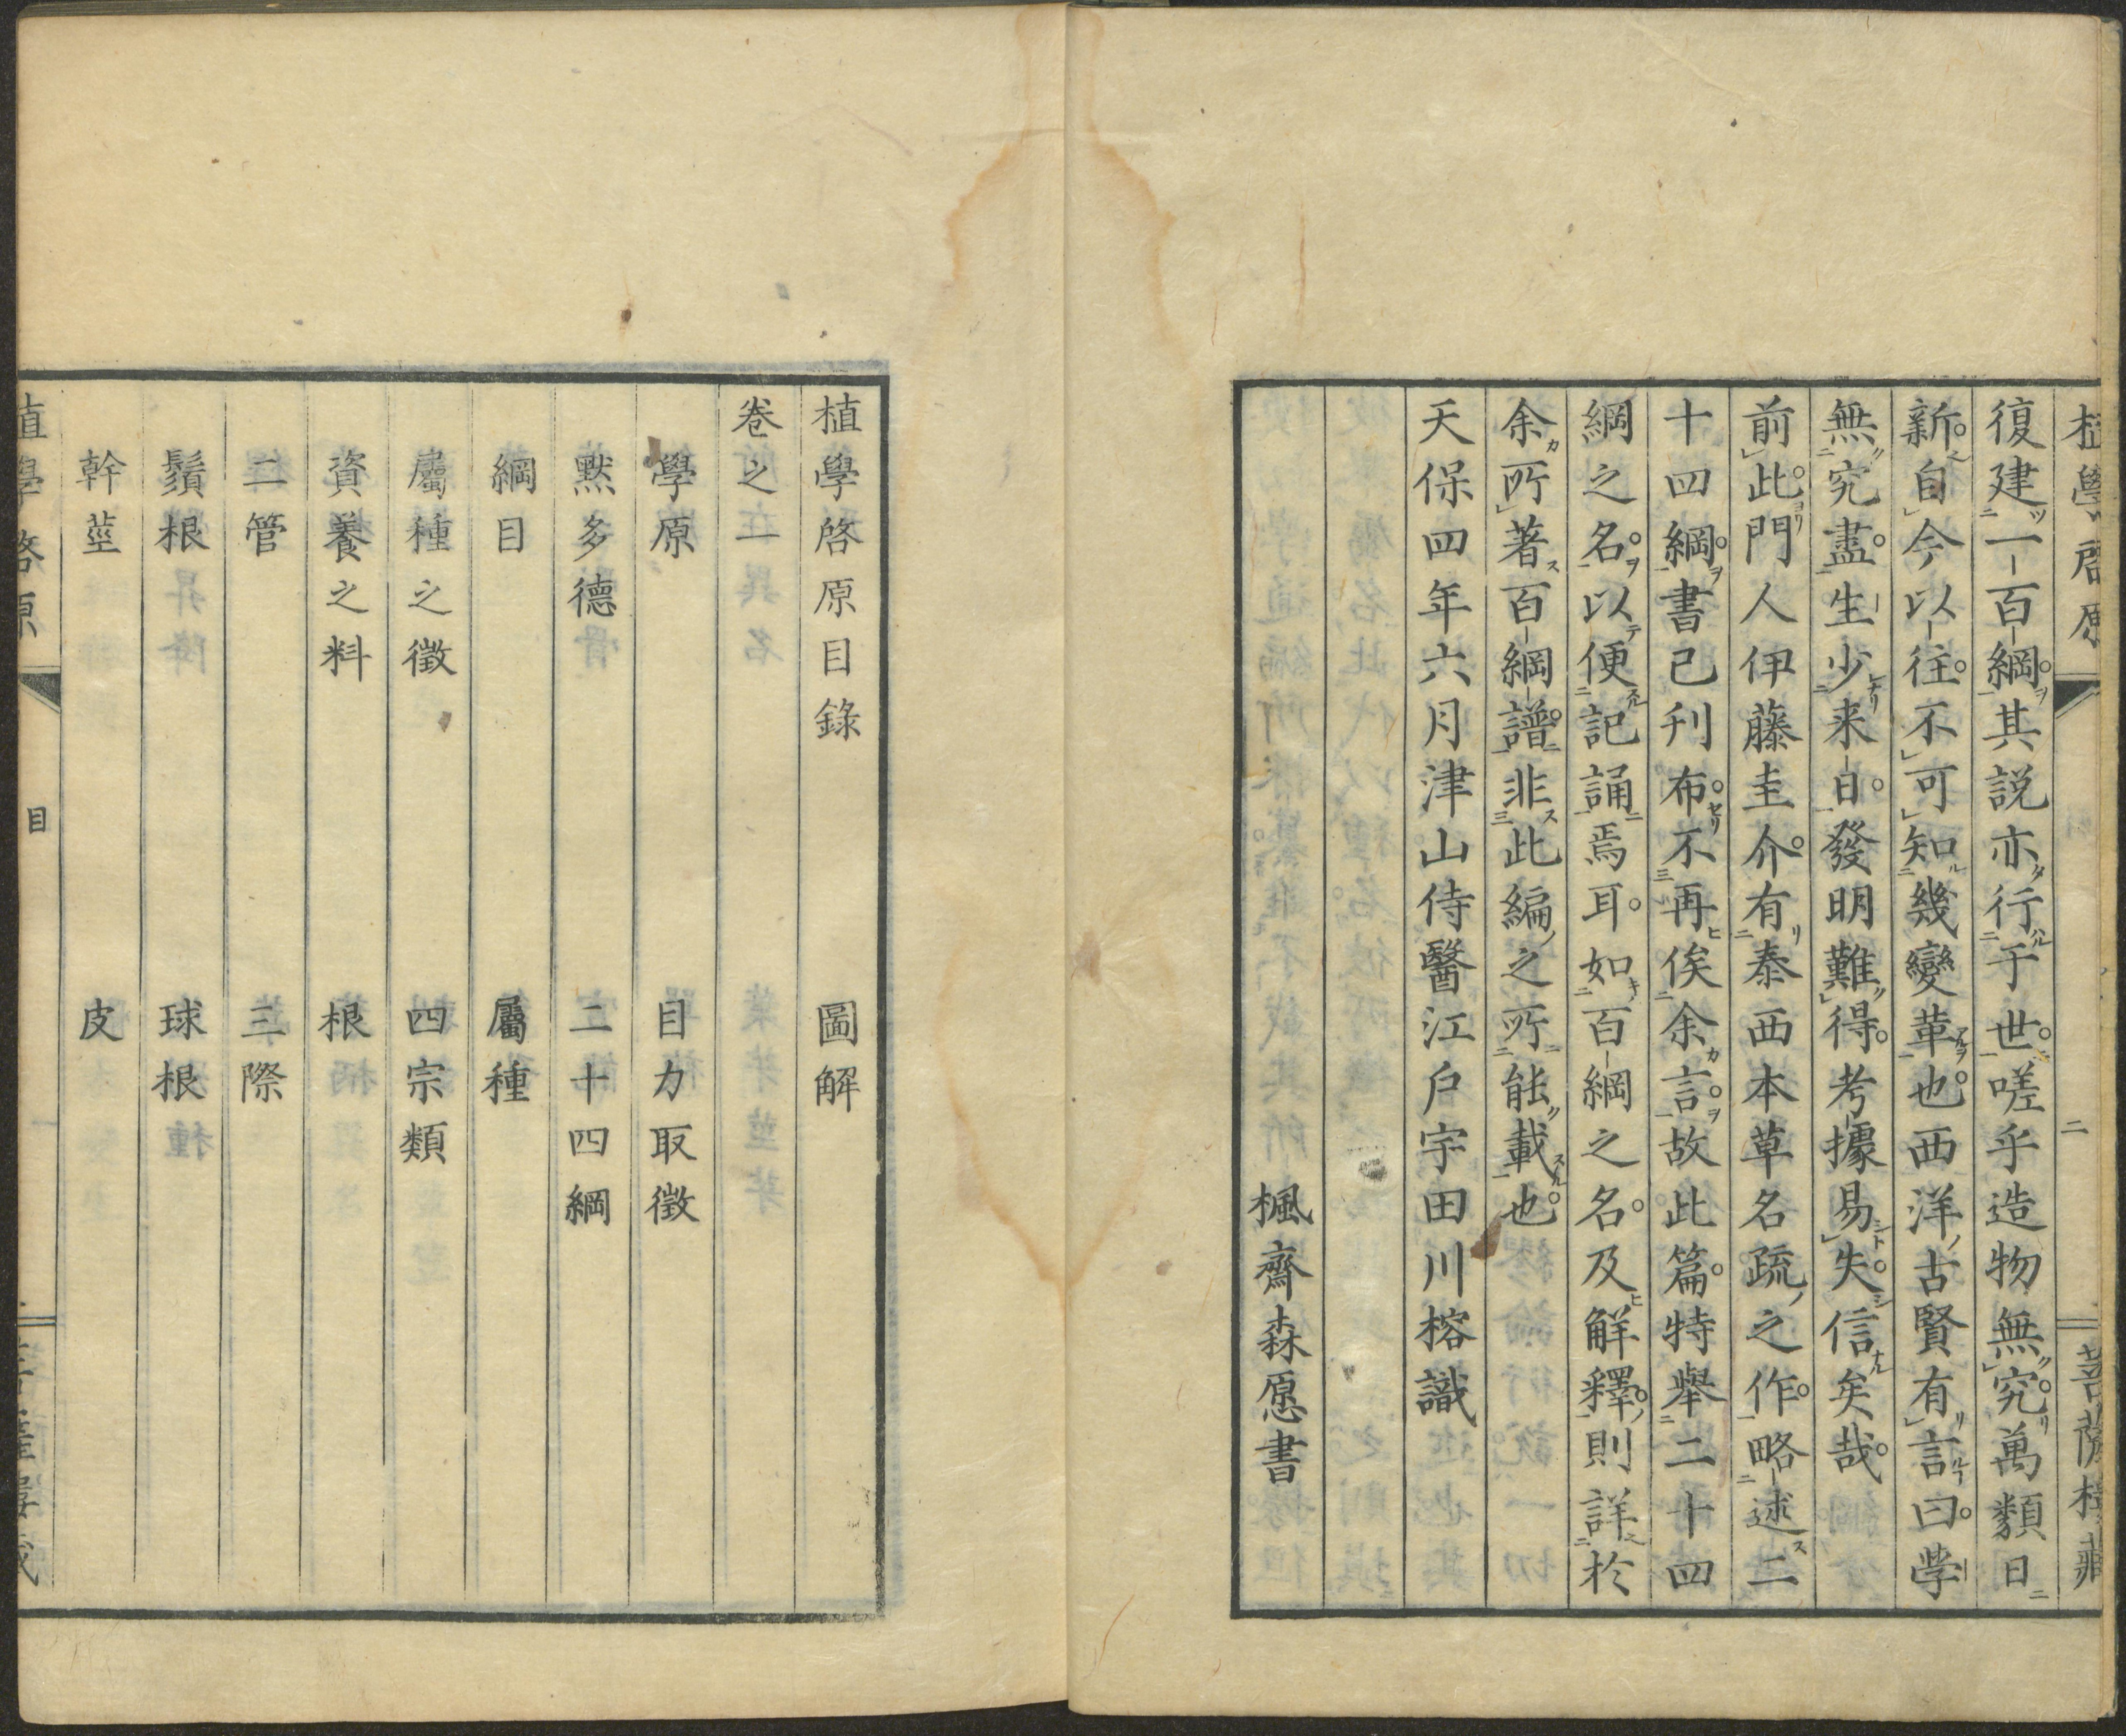 植學啓原
二
菩薩樓藏
復建一百綱其説亦行于世嗟乎造物無究萬類日
新自今以往不可知幾變革也西洋古賢有言曰學
無究盡生少来日發明難得考據易失信矣哉
前此門人伊藤圭介有泰西本草名疏之作略述二
十四綱書已刊布不再俟余言故此篇特舉二十四
綱之名以便記誦焉耳如百綱之名及解釋則詳於
余所著百綱譜非此編之所能載也
天保四年六月津山侍醫江戸宇田川榕識
楓齋森愿書
植學啓原目錄 圖解
卷之一
學原 目力取徴
黙多德 二十四綱
綱目 屬種
屬種之徴 四宗類
資養之料 根
二管 三際
鬚根 球根
幹莖 皮
植學啓原
目